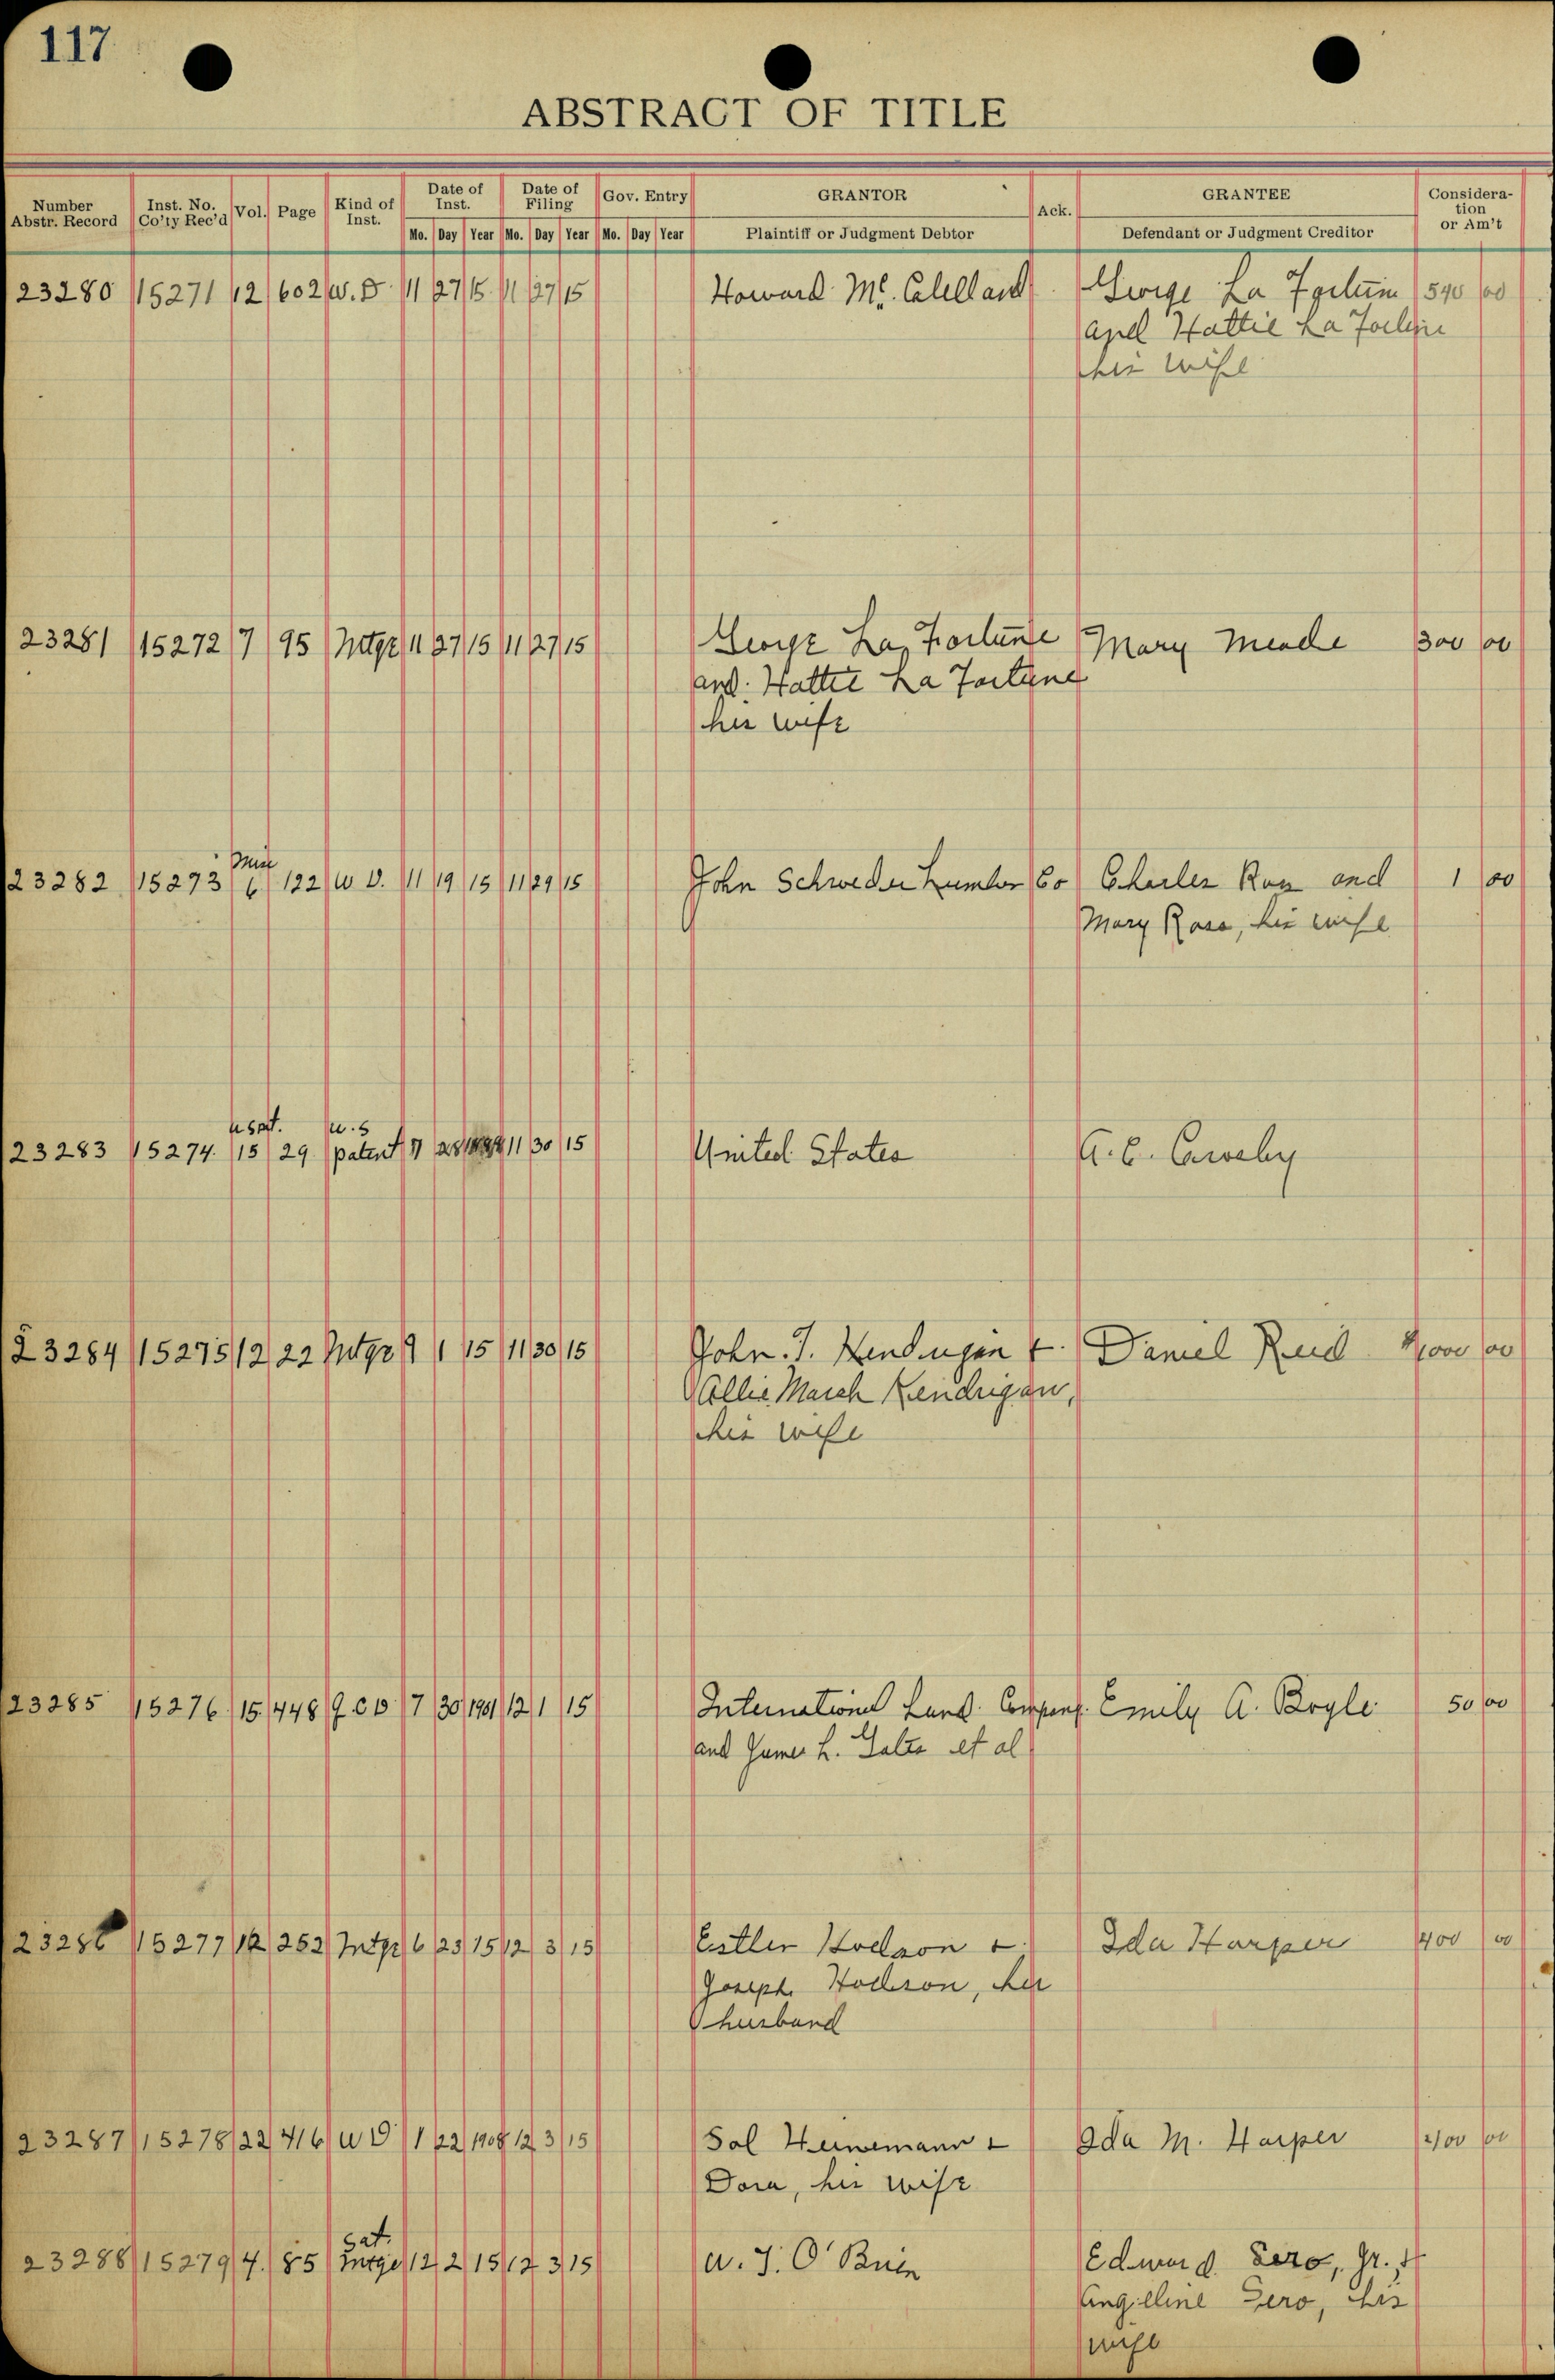 117
ABSTRACT OF TITLE
Number Abstr. Record Inst. No. Co'ty Rec'd Vol. Page Kind of Inst. Date of Inst. Date of Filing Gov. Entry GRANTOR Ack. GRANTEE Consideration or Am't
Mo. Day Year Mo. Day Year Mo. Day Year Plaintiff or Judgment Debtor Defendant or Judgment Creditor
23280 15271 12 602 W. D. 11 27 15 11 27 15 Howard Mc. Clelland George La 540 00
and Hattie La
his wife
23281 15272 7 95 Mtge 11 27 15 11 27 15 George La Fortune Mary Meade 300 00
and Hattie La Fortune
his wife
Mis
23282 15273 6 122 W D. 11 19 15 11 29 15 John Schroeder Lumber Co Charles Ross and 1 00
Mary Ross, his wife
u.s
23283 15274 15 29 patent 28 11 30 15 United States
23284 15275 12 22 Mtge 9 1 15 11 30 15 John. J. &. Daniel Reid 00
Allie March Kendrigan,
his wife
23285 15276 15 448 Q. C D 7 30 12 1 15 International Land Company Emily A. Boyle 50 00
and James L. Gates et al
23286 15277 12 252 Mtge 6 23 15 12 3 15 Esther Hodson & Ida Harper 400 00
Joseph Hodson, her
husband
23287 15278 22 416 W D 1 22 1908 12 3 15 Sol Heinemann & Ida M. Harper 00
Dora, his wife
Sat.
23288 15279 4. 85 mtge 12 2 15 12 3 15 O'Brien Edward Sero, Jr. &
Angeline Sero, his
wife